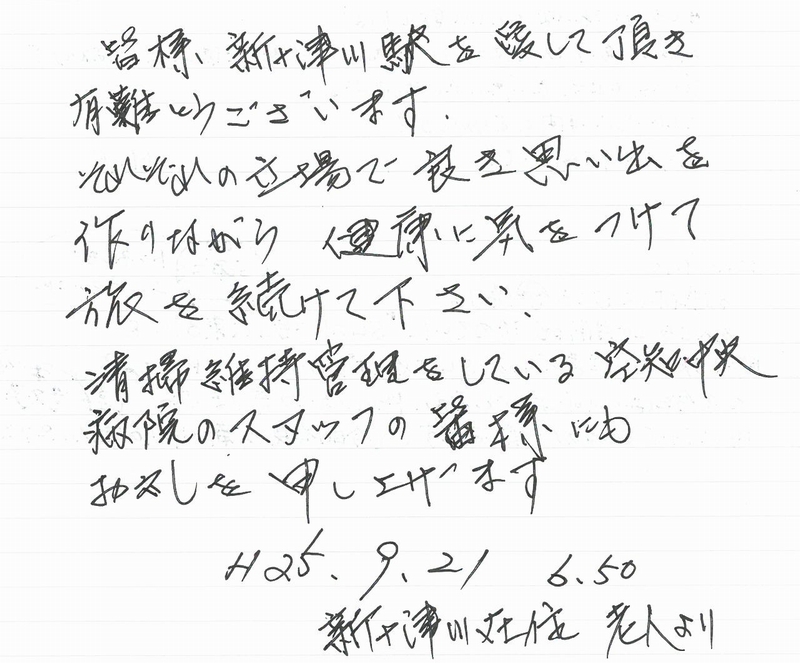 皆様、新十津川駅を愛して頂き
有難とうございます.
それぞれの立場で良き思い出を
作りながら 健康に気をつけて
旅を続けて下さい.
清掃維持管理をしている空知中央
病院のスタッフの皆様にも
お礼しを申し上げます
H25. 9. 21 6.50
新十津川在住 老人より